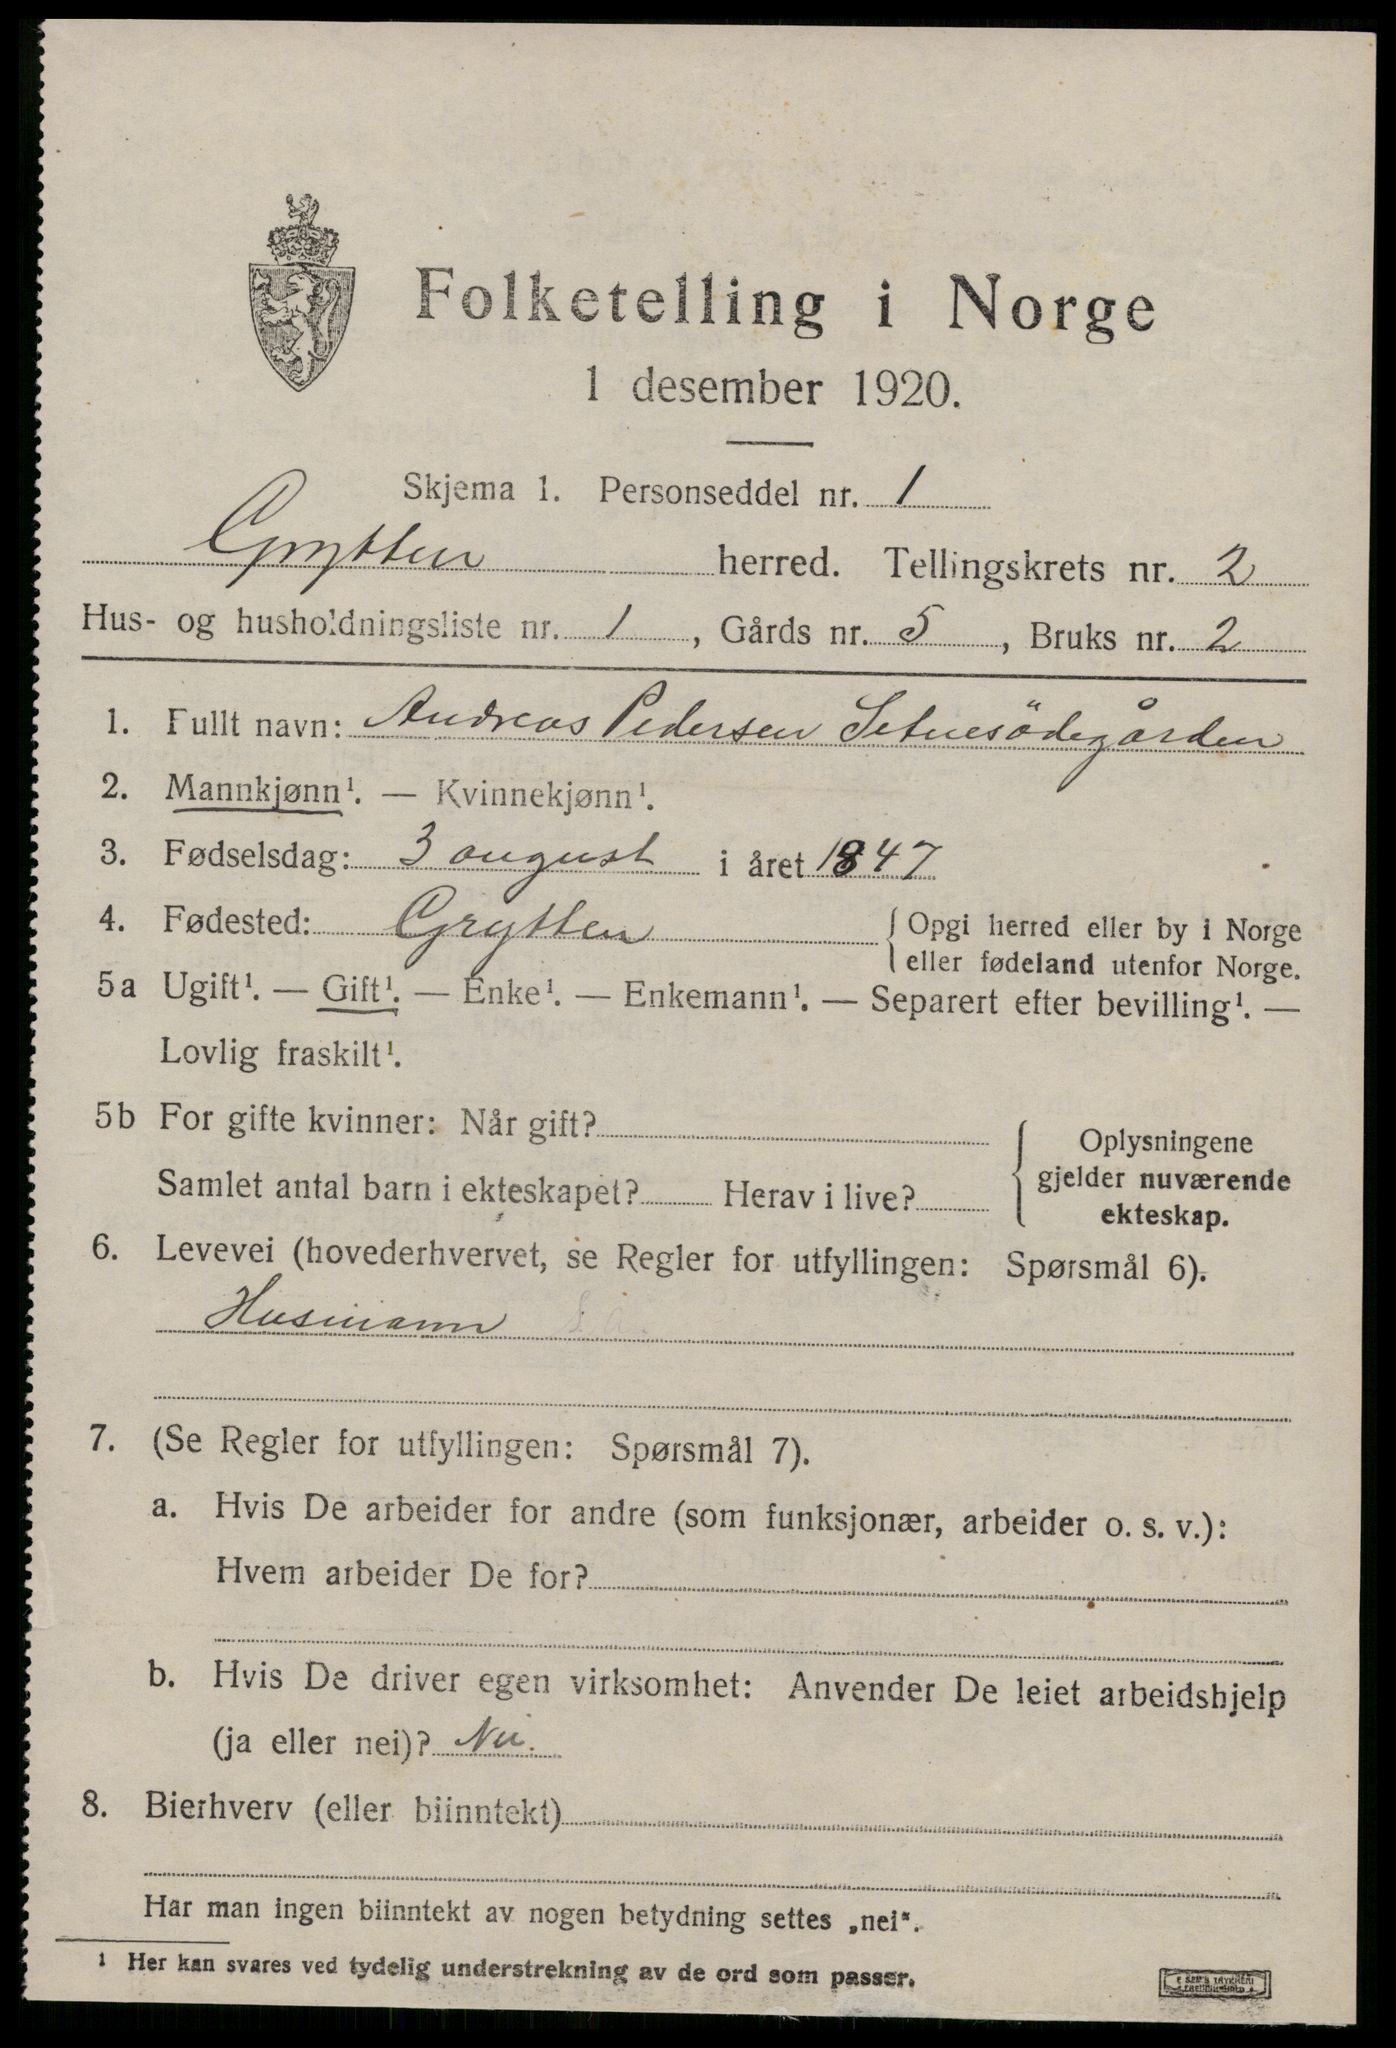 Folketelling i Norge
1 desember 1920.
Skjema 1. Personseddel nr. 1
Grytten herred. Tellingskrets nr. 2
Hus- og husholdningsliste nr. 1, Gårds nr. 5, Bruks nr. 2
1. Fullt navn: Andreas Pedersen Setnesödegården
2. Mannkjønn¹. — Kvinnekjønn¹.
3. Fødselsdag: 3 august i året 1847
4. Fødested: Grytten { Opgi herred eller by i Norge
eller fødeland utenfor Norge.
5a Ugift¹. — Gift¹. — Enke¹. — Enkemann¹. — Separert efter bevilling¹. —
Lovlig fraskilt¹.
5b For gifte kvinner: Når gift?
Samlet antal barn i ekteskapet? Herav i live?
Oplysningene
gjelder nuværende
ekteskap.
6. Levevei (hovederhvervet, se Regler for utfyllingen: Spørsmål 6).
Husmann
7. (Se Regler for utfyllingen: Spørsmål 7).
a. Hvis De arbeider for andre (som funksjonær, arbeider o. s. v.):
Hvem arbeider De for?
b. Hvis De driver egen virksomhet: Anvender De leiet arbeidshjelp
(ja eller nei)? Nei.
8. Bierhverv (eller biinntekt)
Har man ingen biinntekt av nogen betydning settes „nei“.
¹ Her kan svares ved tydelig understrekning av de ord som passer.